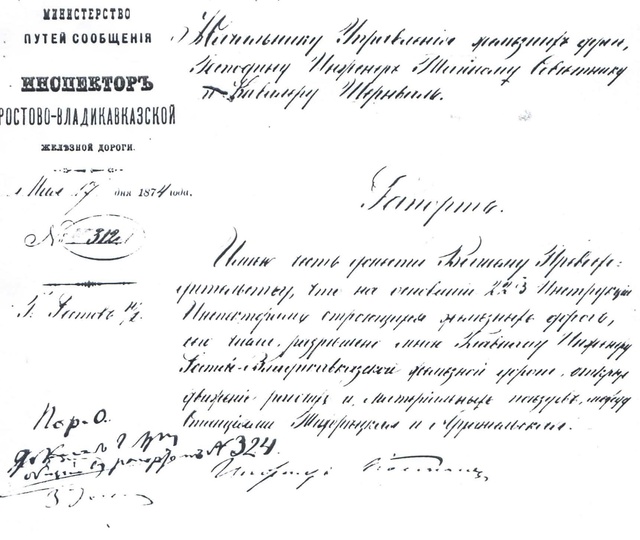 МИНИСТЕРСТВО
ПУТЕЙ СООБЩЕНІЯ
ИНСПЕКТОРЪ
РОСТОВО-ВЛАДИКАВКАЗСКОЙ
ЖЕЛѢЗНОЙ ДОРОГИ.
17 дня 1874 года.
№ 312
Г. Ростовъ н/Д.
Начальнику Управленія желѣзныхъ дорогъ,
Господину Инженеръ Тайному Совѣтнику
и Кавалеру Шернваль.
Рапортъ.
Имѣю честь донести Вашему Превосхо-
дительству, что на основаніи § 223 Инструкціи
Инспекторамъ строющихся желѣзныхъ дорогъ,
разрѣшено мною Главному Инженеру
Ростово-Владикавказской желѣзной дороги, открыть
движеніе рабочихъ и матеріальныхъ поѣздовъ, между
Станціями Тихорѣцкая и
Инспекторъ
Пор. О.
рапортомъ № 324.